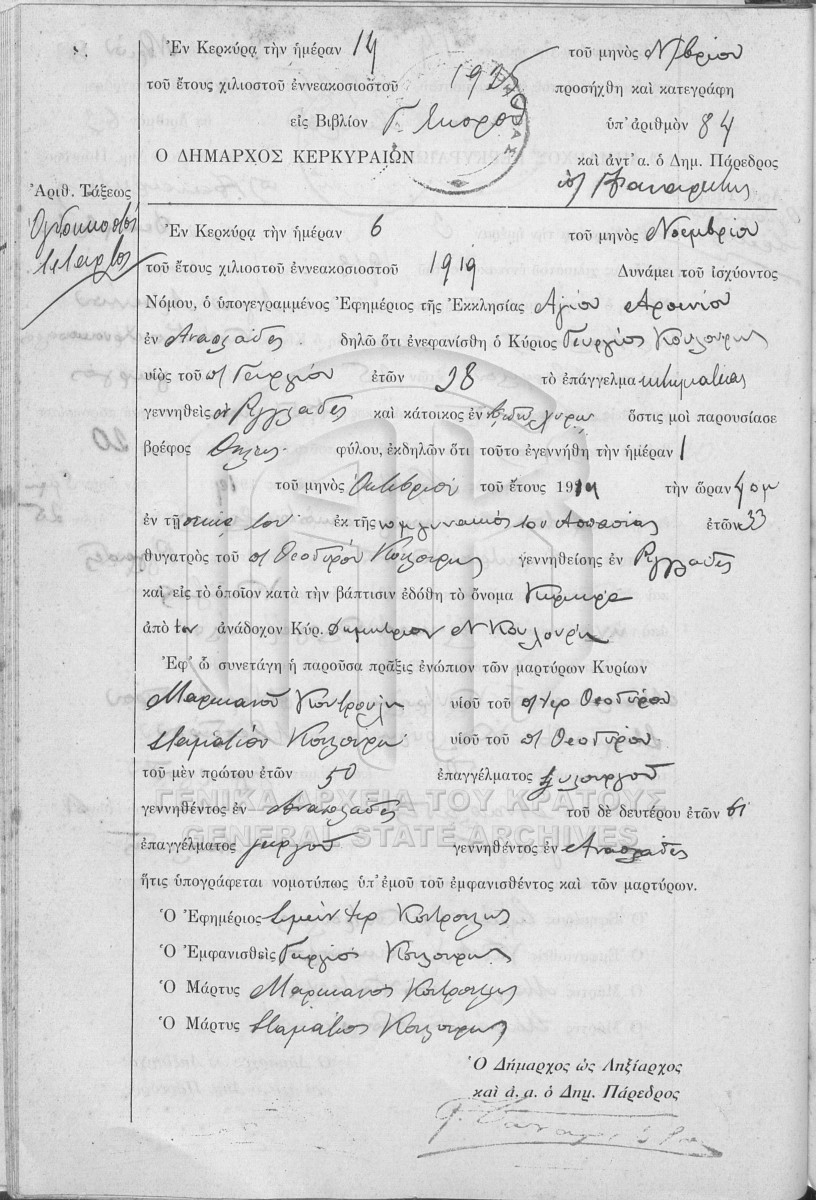 Ἐν Κερκύρᾳ τὴν ἡμέραν 14 τοῦ μηνὸς Νβρίου
τοῦ ἔτους χιλιοστοῦ ἐννεακοσιοστοῦ 192 προσήχθη καὶ κατεγράφη
εἰς Βιβλίον Γ. ὑπ' ἀριθμὸν 84
Ο ΔΗΜΑΡΧΟΣ ΚΕΡΚΥΡΑΙΩΝ καὶ ἀντ' α. ὁ Δημ. Πάρεδρος
Ἀριθ. Τάξεως
Ὀγδοηκοστὸς
τέταρτος
Ἐν Κερκύρᾳ τὴν ἡμέραν 6 τοῦ μηνὸς Νοεμβρίου
τοῦ ἔτους χιλιοστοῦ ἐννεακοσιοστοῦ 1919 Δυνάμει τοῦ ἰσχύοντος
Νόμου, ὁ ὑπογεγραμμένος Ἐφημέριος τῆς Ἐκκλησίας Ἁγίου Ἀρσενίου
ἐν Αναπλάδες δηλῶ ὅτι ἐνεφανίσθη ὁ Κύριος Γεώργιος Κουλούρης
υἱὸς τοῦ π Γεωργίου ἐτῶν 38 τὸ ἐπάγγελμα κτηματίας
γεννηθεὶς ἐν Ρηγγλάδες καὶ κάτοικος ἐν ὅστις μοι παρουσίασε
βρέφος θήλεος φύλου, ἐκδηλῶν ὅτι τοῦτο ἐγεννήθη τὴν ἡμέραν 1
τοῦ μηνὸς Ὀκτωβρίου τοῦ ἔτους 1919 τὴν ὥραν 4 πμ
ἐν τῇ οἰκίᾳ του ἐκ τῆς νομ. γυναικός του Ἀσπασίας ἐτῶν 33
θυγατρὸς τοῦ π Θεοδώρου Κουλούρη γεννηθείσης ἐν Ρηγγλάδες
καὶ εἰς τὸ ὁποῖον κατὰ τὴν βάπτισιν ἐδόθη τὸ ὄνομα Κέρκυρα
ἀπὸ τον ἀνάδοχον Κύρ. Δημήτριον Ν Κουλούρη
Ἐφ' ᾧ συνετάγη ἡ παροῦσα πρᾶξις ἐνώπιον τῶν μαρτύρων Κυρίων
Μαρκιανοῦ Κοντρούλη υἱοῦ τοῦ π ιερ Θεοδώρου
Σταματίου Κουλούρη υἱοῦ τοῦ π Θεοδώρου
τοῦ μὲν πρώτου ἐτῶν 50 ἐπαγγέλματος ξυλουργοῦ
γεννηθέντος ἐν Αναπλάδες τοῦ δὲ δευτέρου ἐτῶν 61
ΓΕΝΙΚΑ ΑΡΧΕΙΑ ΤΟΥ ΚΡΑΤΟΥΣ
GENERAL STATE ARCHIVES
ἐπαγγέλματος γεωργοῦ γεννηθέντος ἐν Αναπλάδες
ἥτις ὑπογράφεται νομοτύπως ὑπ' ἐμοῦ τοῦ ἐμφανισθέντος καὶ τῶν μαρτύρων.
Ὁ Ἐφημέριος Συμεὼν Ιερ Κοντρούλης
Ὁ Ἐμφανισθεὶς Γεώργιος Κουλούρης
Ὁ Μάρτυς Μαρκιανὸς Κοντρούλης
Ὁ Μάρτυς Σταμάτιος Κουλούρης
Ὁ Δήμαρχος ὡς Ληξίαρχος
καὶ ἀ. α. ὁ Δημ. Πάρεδρος